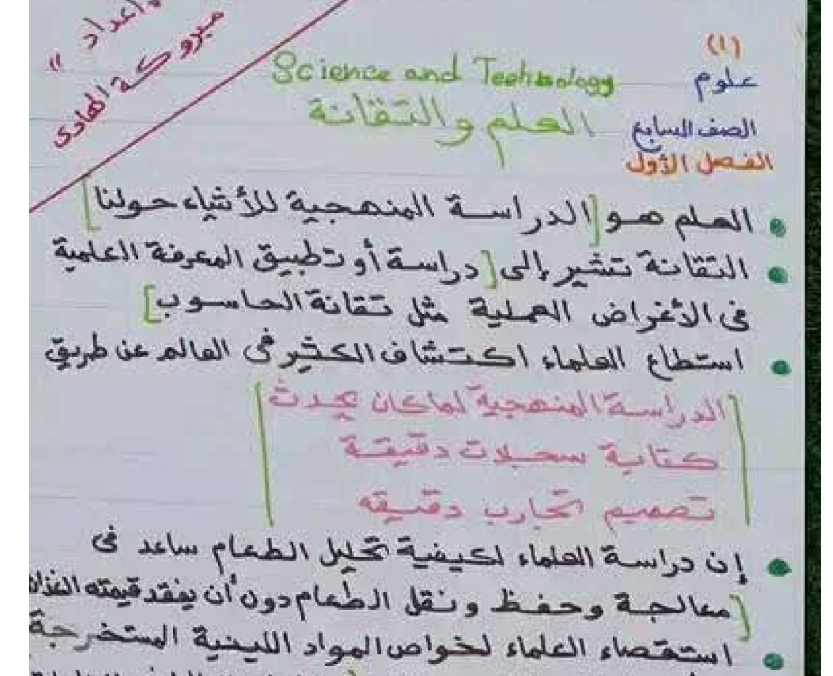 (١)
علوم
الصف السابع
الفصل الأول
إعداد "
مبروكة الهادى
Science and Technology
العلم والتقانة
العلم هو [الدراسة المنهجية للأشياء حولنا]
التقانة تشير إلى [دراسة أو تطبيق المعرفة العلمية
فى الأغراض العملية مثل تقانة الحاسوب]
استطاع العلماء اكتشاف الكثير فى العالم عن طريق
[الدراسة المنهجية لما كان يحدث
كتابة سجلات دقيقة
تصميم تجارب دقيقه]
إن دراسة العلماء لكيفية تحليل الطعام ساعد فى
[معالجة وحفظ ونقل الطعام دون أن يفقد قيمته
استقصاء العلماء لخواص المواد الليفية المستخرجة